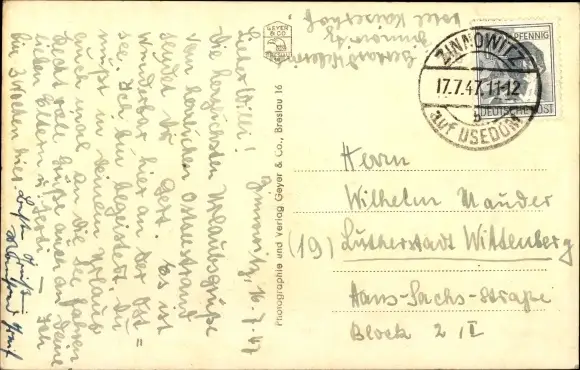 Zinnowitz, 16.7.47
Lieber Willi!
Die herzlichsten Urlaubsgrüße
vom herrlichen Ostseestrand
sendet Dir Gert. Es ist
wunderbar hier an der Ost=
see. Ich bin begeistert. Du
mußt in Deinem Urlaub
auch mal an die See fahren.
Recht viele Grüße auch an Deine
lieben Eltern u. Gerti. – Ich
bin 3 Wochen hier.
Zinnowitz
Hotel Kaiserhof
GEYER
& CO
Photographie und Verlag Geyer & Co., Breslau 16
PFENNIG
DEUTSCHE POST
ZINNOWITZ
17.7.47.11-12
b
auf USEDOM
Herrn
Wilhelm Mauder
(19) Lutherstadt Wittenberg
Hans-Sachs-Straße
Block 2, I